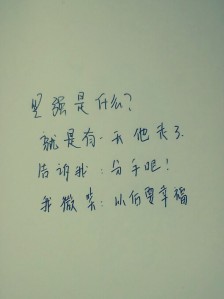 坚强是什么?
就是有一天他走了.
告诉我:分手吧!
我微笑:以后要幸福